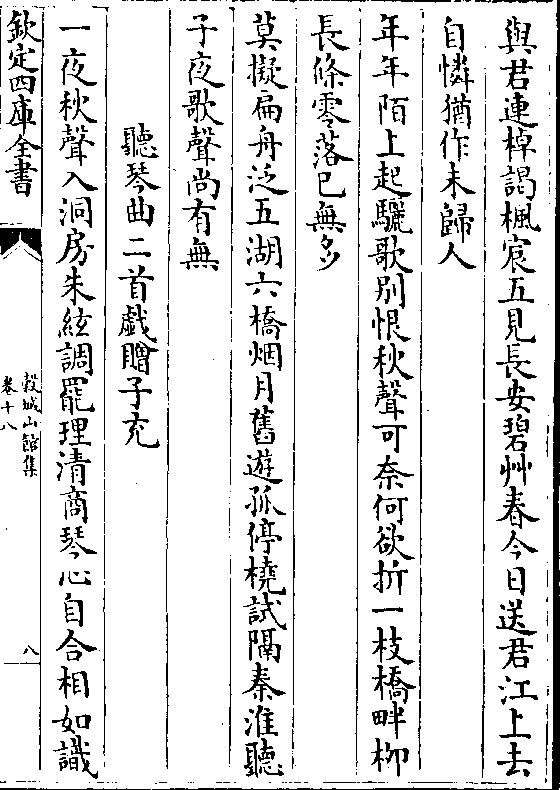 與君連棹謁楓宸五見長安碧艸春今日送君江上去
自憐猶作未歸人
年年陌上起驪歌别恨秋聲可奈何欲折一枝橋畔柳
長條零落已無多
莫擬扁舟泛五湖六橋烟月舊遊孤停橈試隔秦淮聽
子夜歌聲尚有無
聽琴曲二首戯贈子充
一夜秋聲入洞房朱絃調罷理清商琴心自合相如識
欽定四庫全書
榖城山館集
卷十八
八